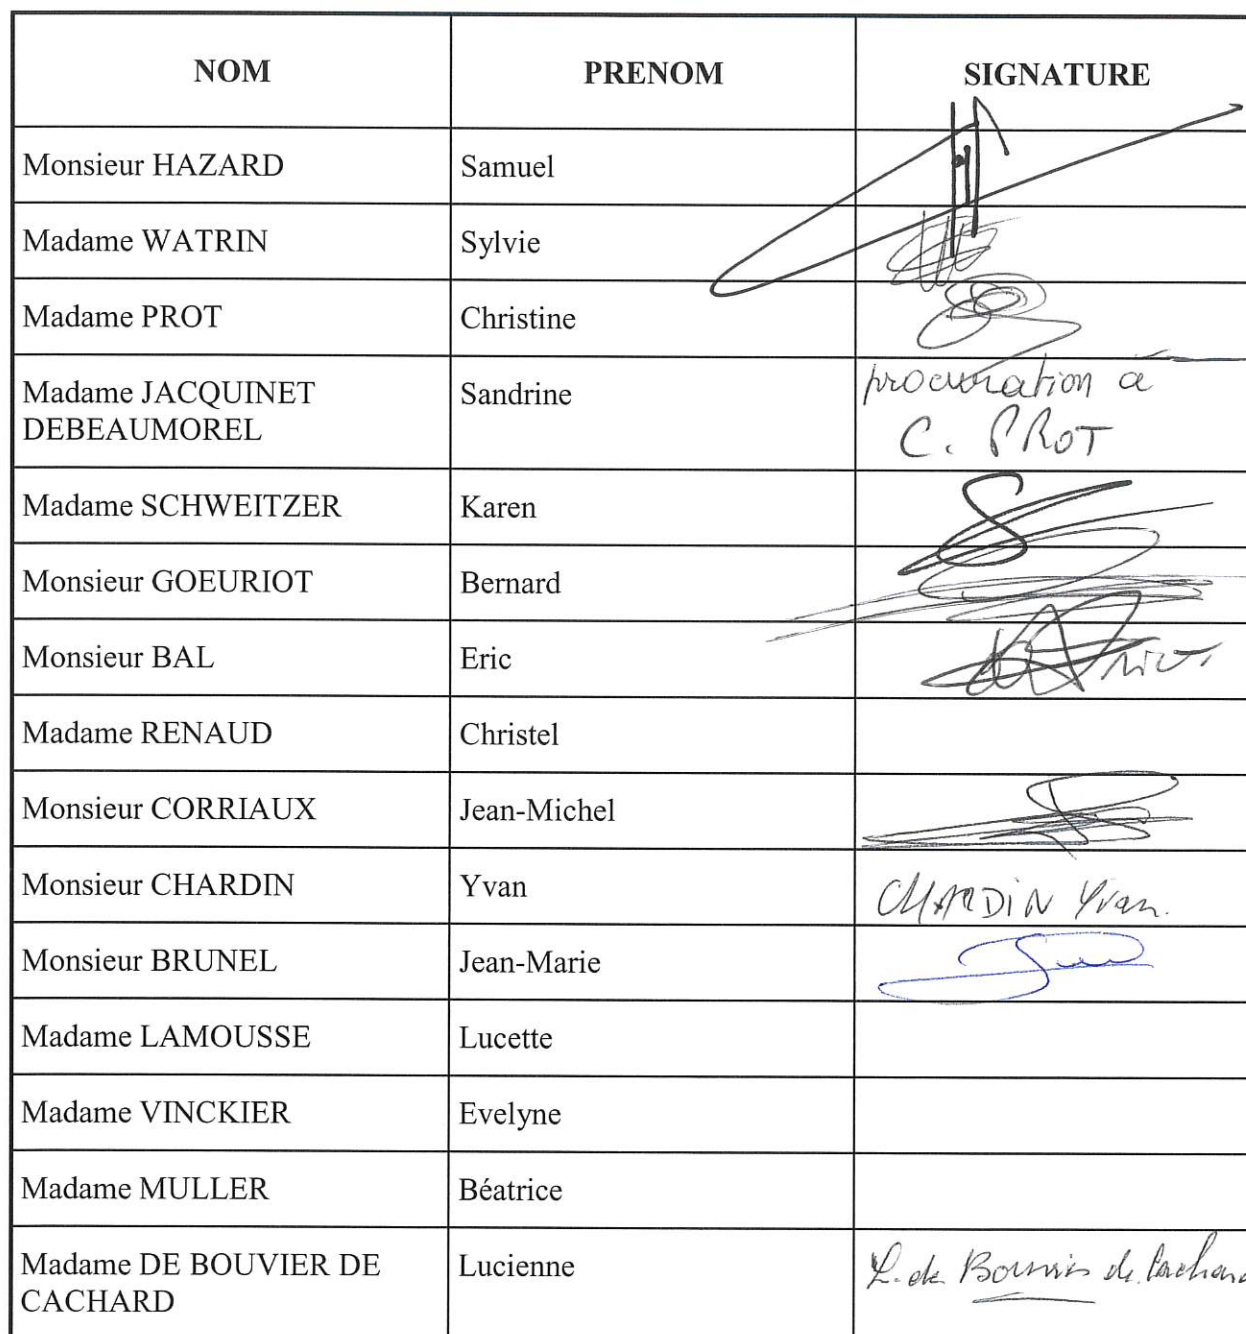 NOM PRENOM SIGNATURE
Monsieur HAZARD Samuel
Madame WATRIN Sylvie
Madame PROT Christine
Madame JACQUINET Sandrine procuration à
DEBEAUMOREL C. PROT
Madame SCHWEITZER Karen
Monsieur GOEURIOT Bernard
Monsieur BAL Eric
Madame RENAUD Christel
Monsieur CORRIAUX Jean-Michel
Monsieur CHARDIN Yvan CHARDIN Yvan.
Monsieur BRUNEL Jean-Marie
Madame LAMOUSSE Lucette
Madame VINCKIER Evelyne
Madame MULLER Béatrice
Madame DE BOUVIER DE Lucienne L. de Bouvier de Cachard
CACHARD